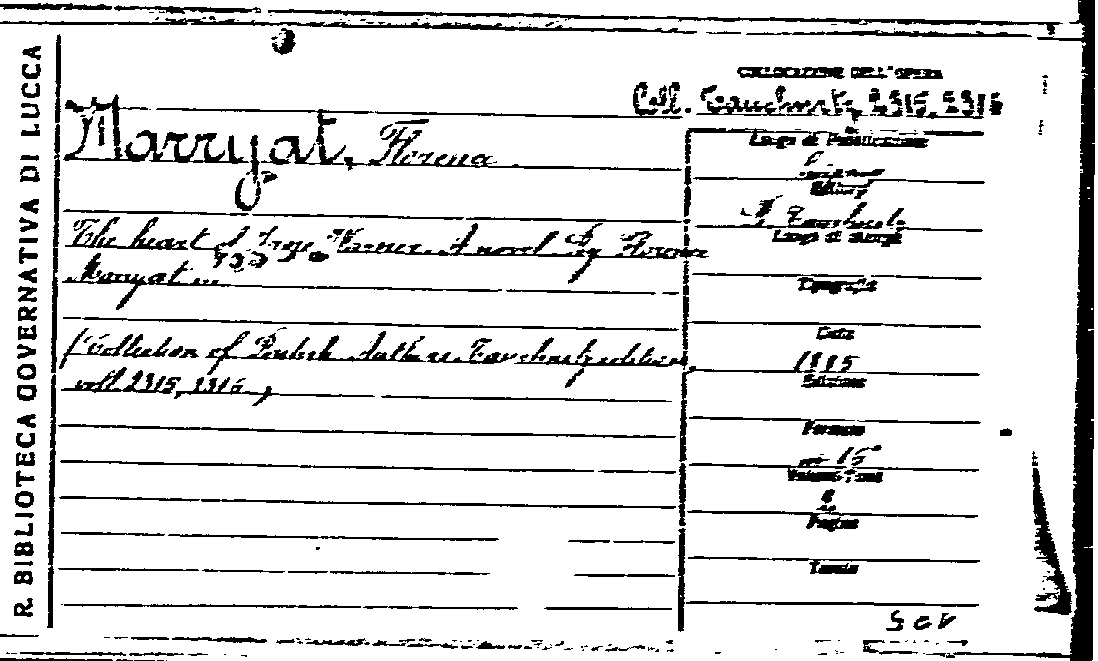 R. BIBLIOTECA GOVERNATIVA DI LUCCA
COLLOCAZIONE DELL'OPERA
Coll. Tauchnitz, 2315, 2316
Marryat, Florence
The heart of Jane Warner. A novel by Florence
Marryat ...
(Collection of British Authors. Tauchnitz edition,
voll. 2315, 2316.)
Luogo di Pubblicazione
Editore
B. Tauchnitz
Luogo di stampa
Tipografia
Data
1885
Edizione
Formato
in 16°
Volumi-Tomi
2
Pagine
Tavole